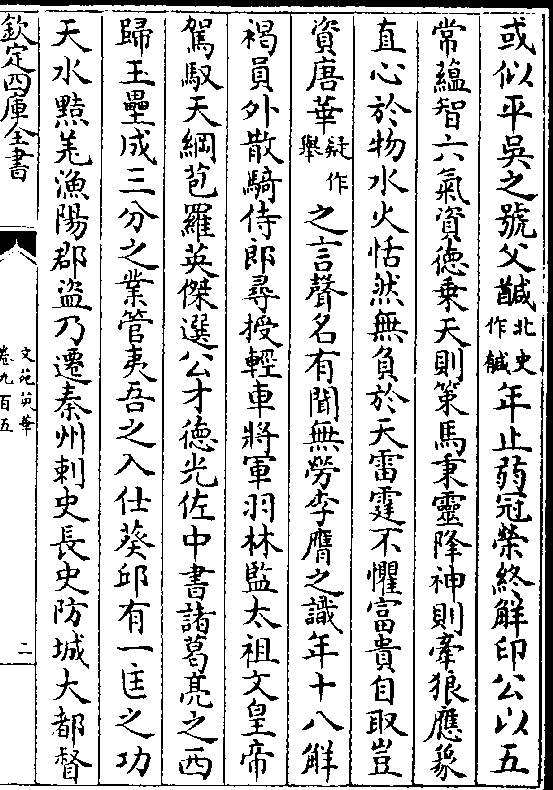 或似平吳之號父馘北史作䤋年止弱冠榮終解印公以五
常蘊智六氣資德乗天則策馬秉靈降神則牽狼應𧰼
直心於物水火恬然無負於天雷霆不懼富貴自取豈
資唐華疑作舉之言聲名有聞無勞李膺之識年十八解
褐員外散騎侍郎尋授輕車將軍羽林監太祖文皇帝
駕馭天綱苞羅英傑選公才德光佐中書諸葛亮之西
歸王壘成三分之業管夷吾之入仕葵邱有一匡之功
天水黠羌漁陽郡盜乃遷秦州刺史長史防城大都督
欽定四庫全書
文苑英華
卷九百五
二